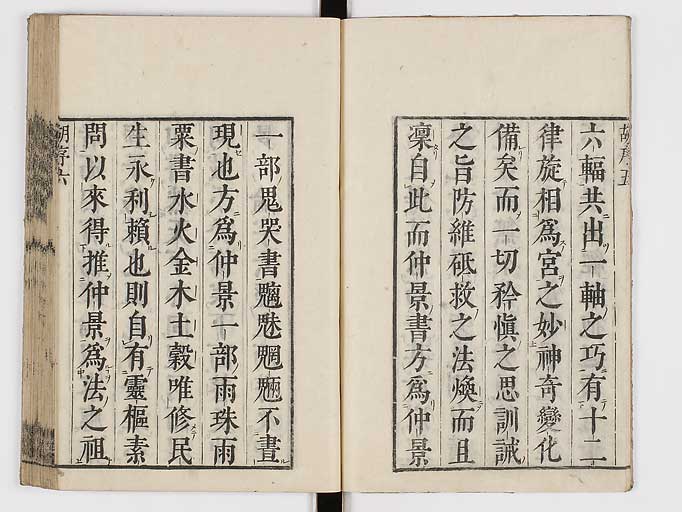 胡序五
六輻共出一軸之巧有十二
律旋相為宮之妙神奇變化
備矣而一切矜愼之思訓誡
之旨防維砥救之法煥而且
凜自此而仲景書方為仲景
一部鬼哭書魑魅魍魎不晝
現也方為仲景一部雨珠雨
粟書水火金木土榖唯修民
生永利賴也則自有靈樞素
問以來得推仲景為法之祖
胡序六